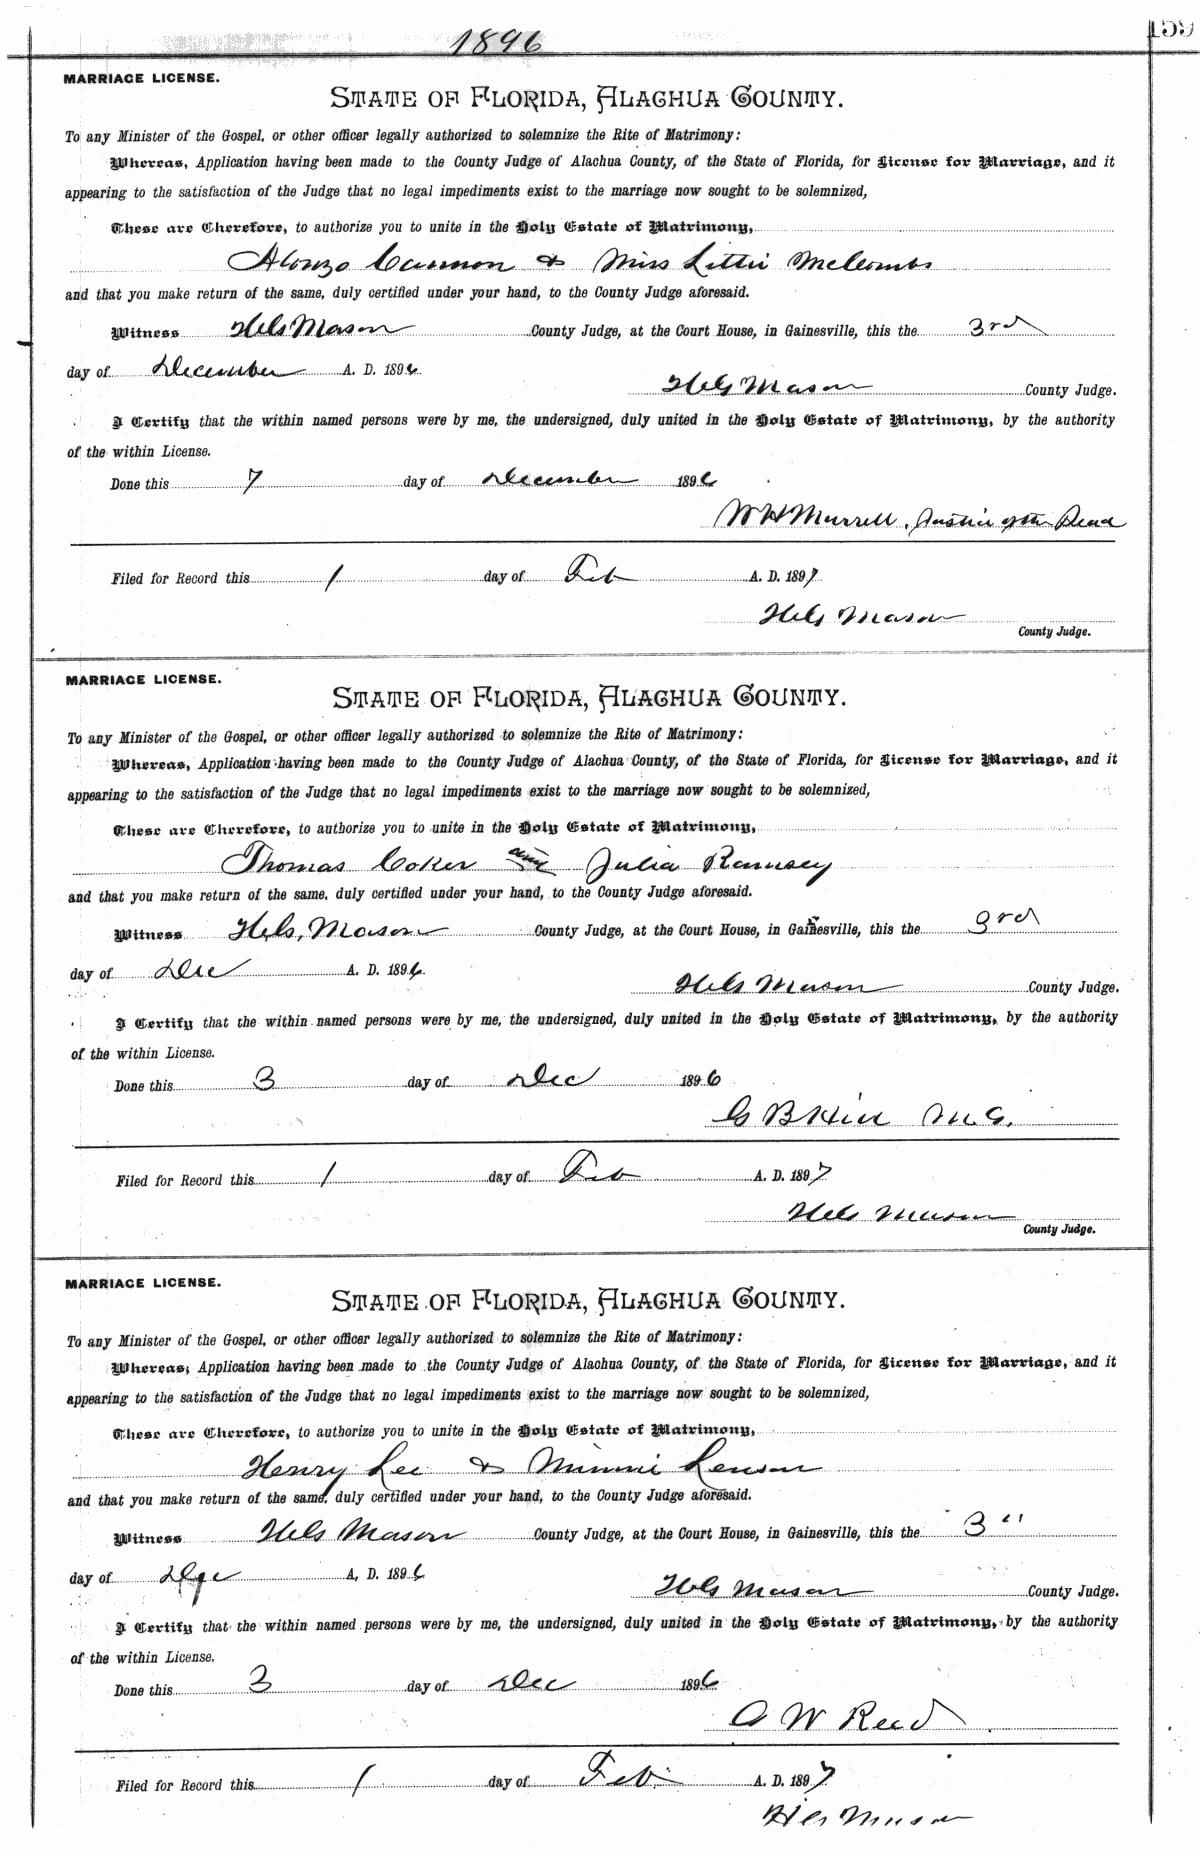 1896
159
MARRIAGE LICENSE.
STATE OF FLORIDA, ALACHUA COUNTY.
To any Minister of the Gospel, or other officer legally authorized to solemnize the Rite of Matrimony:
Whereas, Application having been made to the County Judge of Alachua County, of the State of Florida, for License for Marriage, and it
appearing to the satisfaction of the Judge that no legal impediments exist to the marriage now sought to be solemnized,
These are Therefore, to authorize you to unite in the Holy Estate of Matrimony,
Alonzo Cannon & Miss Littie McCombs
and that you make return of the same, duly certified under your hand, to the County Judge aforesaid.
Witness Mason County Judge, at the Court House, in Gainesville, this the 3rd
day of December A. D. 1896
Mason County Judge.
I Certify that the within named persons were by me, the undersigned, duly united in the Holy Estate of Matrimony, by the authority
of the within License.
Done this 7 day of December 1896
W H Murrell, Justice of the Peace
Filed for Record this 1 day of Feb A. D. 1897
Mason
County Judge.
MARRIAGE LICENSE.
STATE OF FLORIDA, ALACHUA COUNTY.
To any Minister of the Gospel, or other officer legally authorized to solemnize the Rite of Matrimony:
Whereas, Application having been made to the County Judge of Alachua County, of the State of Florida, for License for Marriage, and it
appearing to the satisfaction of the Judge that no legal impediments exist to the marriage now sought to be solemnized,
These are Therefore, to authorize you to unite in the Holy Estate of Matrimony,
Thomas Coker and Julia Ramsey
and that you make return of the same, duly certified under your hand, to the County Judge aforesaid.
Witness Mason County Judge, at the Court House, in Gainesville, this the 3rd
day of Dec A. D. 1896
Mason County Judge.
I Certify that the within named persons were by me, the undersigned, duly united in the Holy Estate of Matrimony, by the authority
of the within License.
Done this 3 day of Dec 1896
G B Hill M.G.
Filed for Record this 1 day of Feb A. D. 1897
Mason
County Judge.
MARRIAGE LICENSE.
STATE OF FLORIDA, ALACHUA COUNTY.
To any Minister of the Gospel, or other officer legally authorized to solemnize the Rite of Matrimony:
Whereas, Application having been made to the County Judge of Alachua County, of the State of Florida, for License for Marriage, and it
appearing to the satisfaction of the Judge that no legal impediments exist to the marriage now sought to be solemnized,
These are Therefore, to authorize you to unite in the Holy Estate of Matrimony,
Henry Lee & Minnie Lenson
and that you make return of the same, duly certified under your hand, to the County Judge aforesaid.
Witness Mason County Judge, at the Court House, in Gainesville, this the 3"
day of Dec A. D. 1896
Mason County Judge.
I Certify that the within named persons were by me, the undersigned, duly united in the Holy Estate of Matrimony, by the authority
of the within License.
Done this 3 day of Dec 1896
A W Reed
Filed for Record this 1 day of Feb. A. D. 1897
Mason